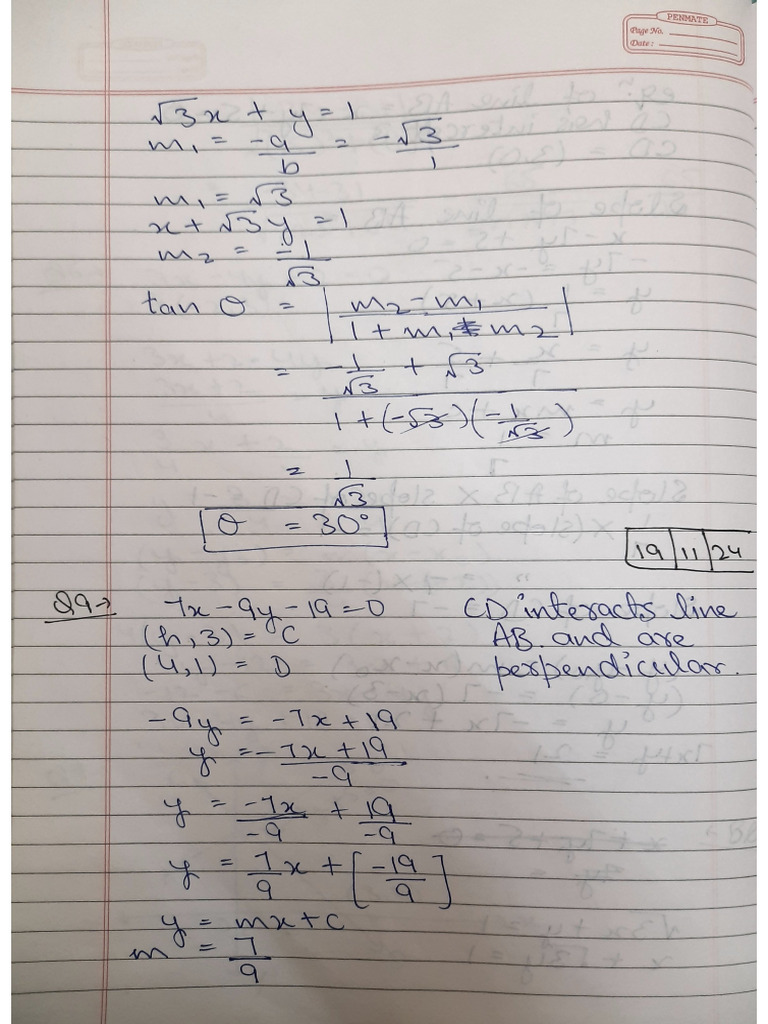 PENMATE
Page No.
Date :
√3x + y = 1
m₁ = -a/b = -√3/1
m₁ = √3
x + √3y = 1
m₂ = -1/√3
tan θ = |(m₂ - m₁)/(1 + m₁ m₂)|
= (-1/√3 + √3)/(1 + (-√3)(-1/√3))
= 1/√3
θ = 30°
19 | 11 | 24
Q9→ 7x - 9y - 19 = 0
(h, 3) = C
(4, 1) = D
CD interacts line
AB. and are
perpendicular.
-9y = -7x + 19
y = (-7x + 19)/-9
y = -7x/-9 + 19/-9
y = 7/9 x + [-19/9]
y = mx + c
m = 7/9